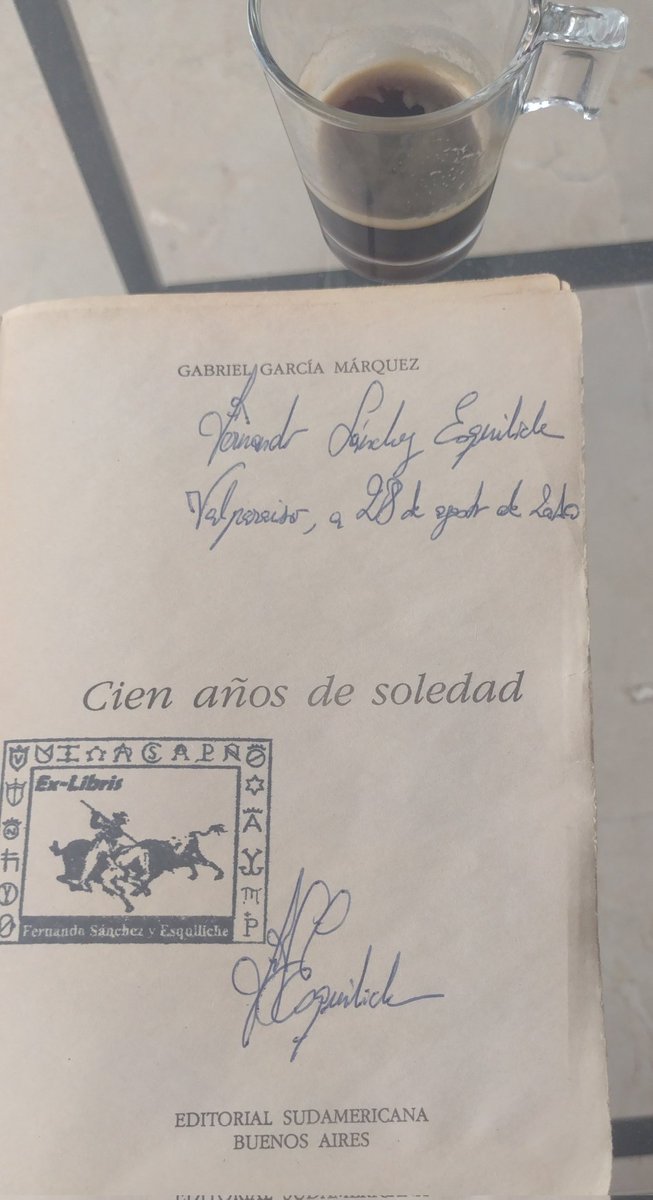 GABRIEL GARCÍA MÁRQUEZ
Fernando Sánchez Esquiliche
Valparaiso, a 28 de agosto de
Cien años de soledad
Ex-Libris
Fernando Sánchez y Esquiliche
Esquiliche
EDITORIAL SUDAMERICANA
BUENOS AIRES